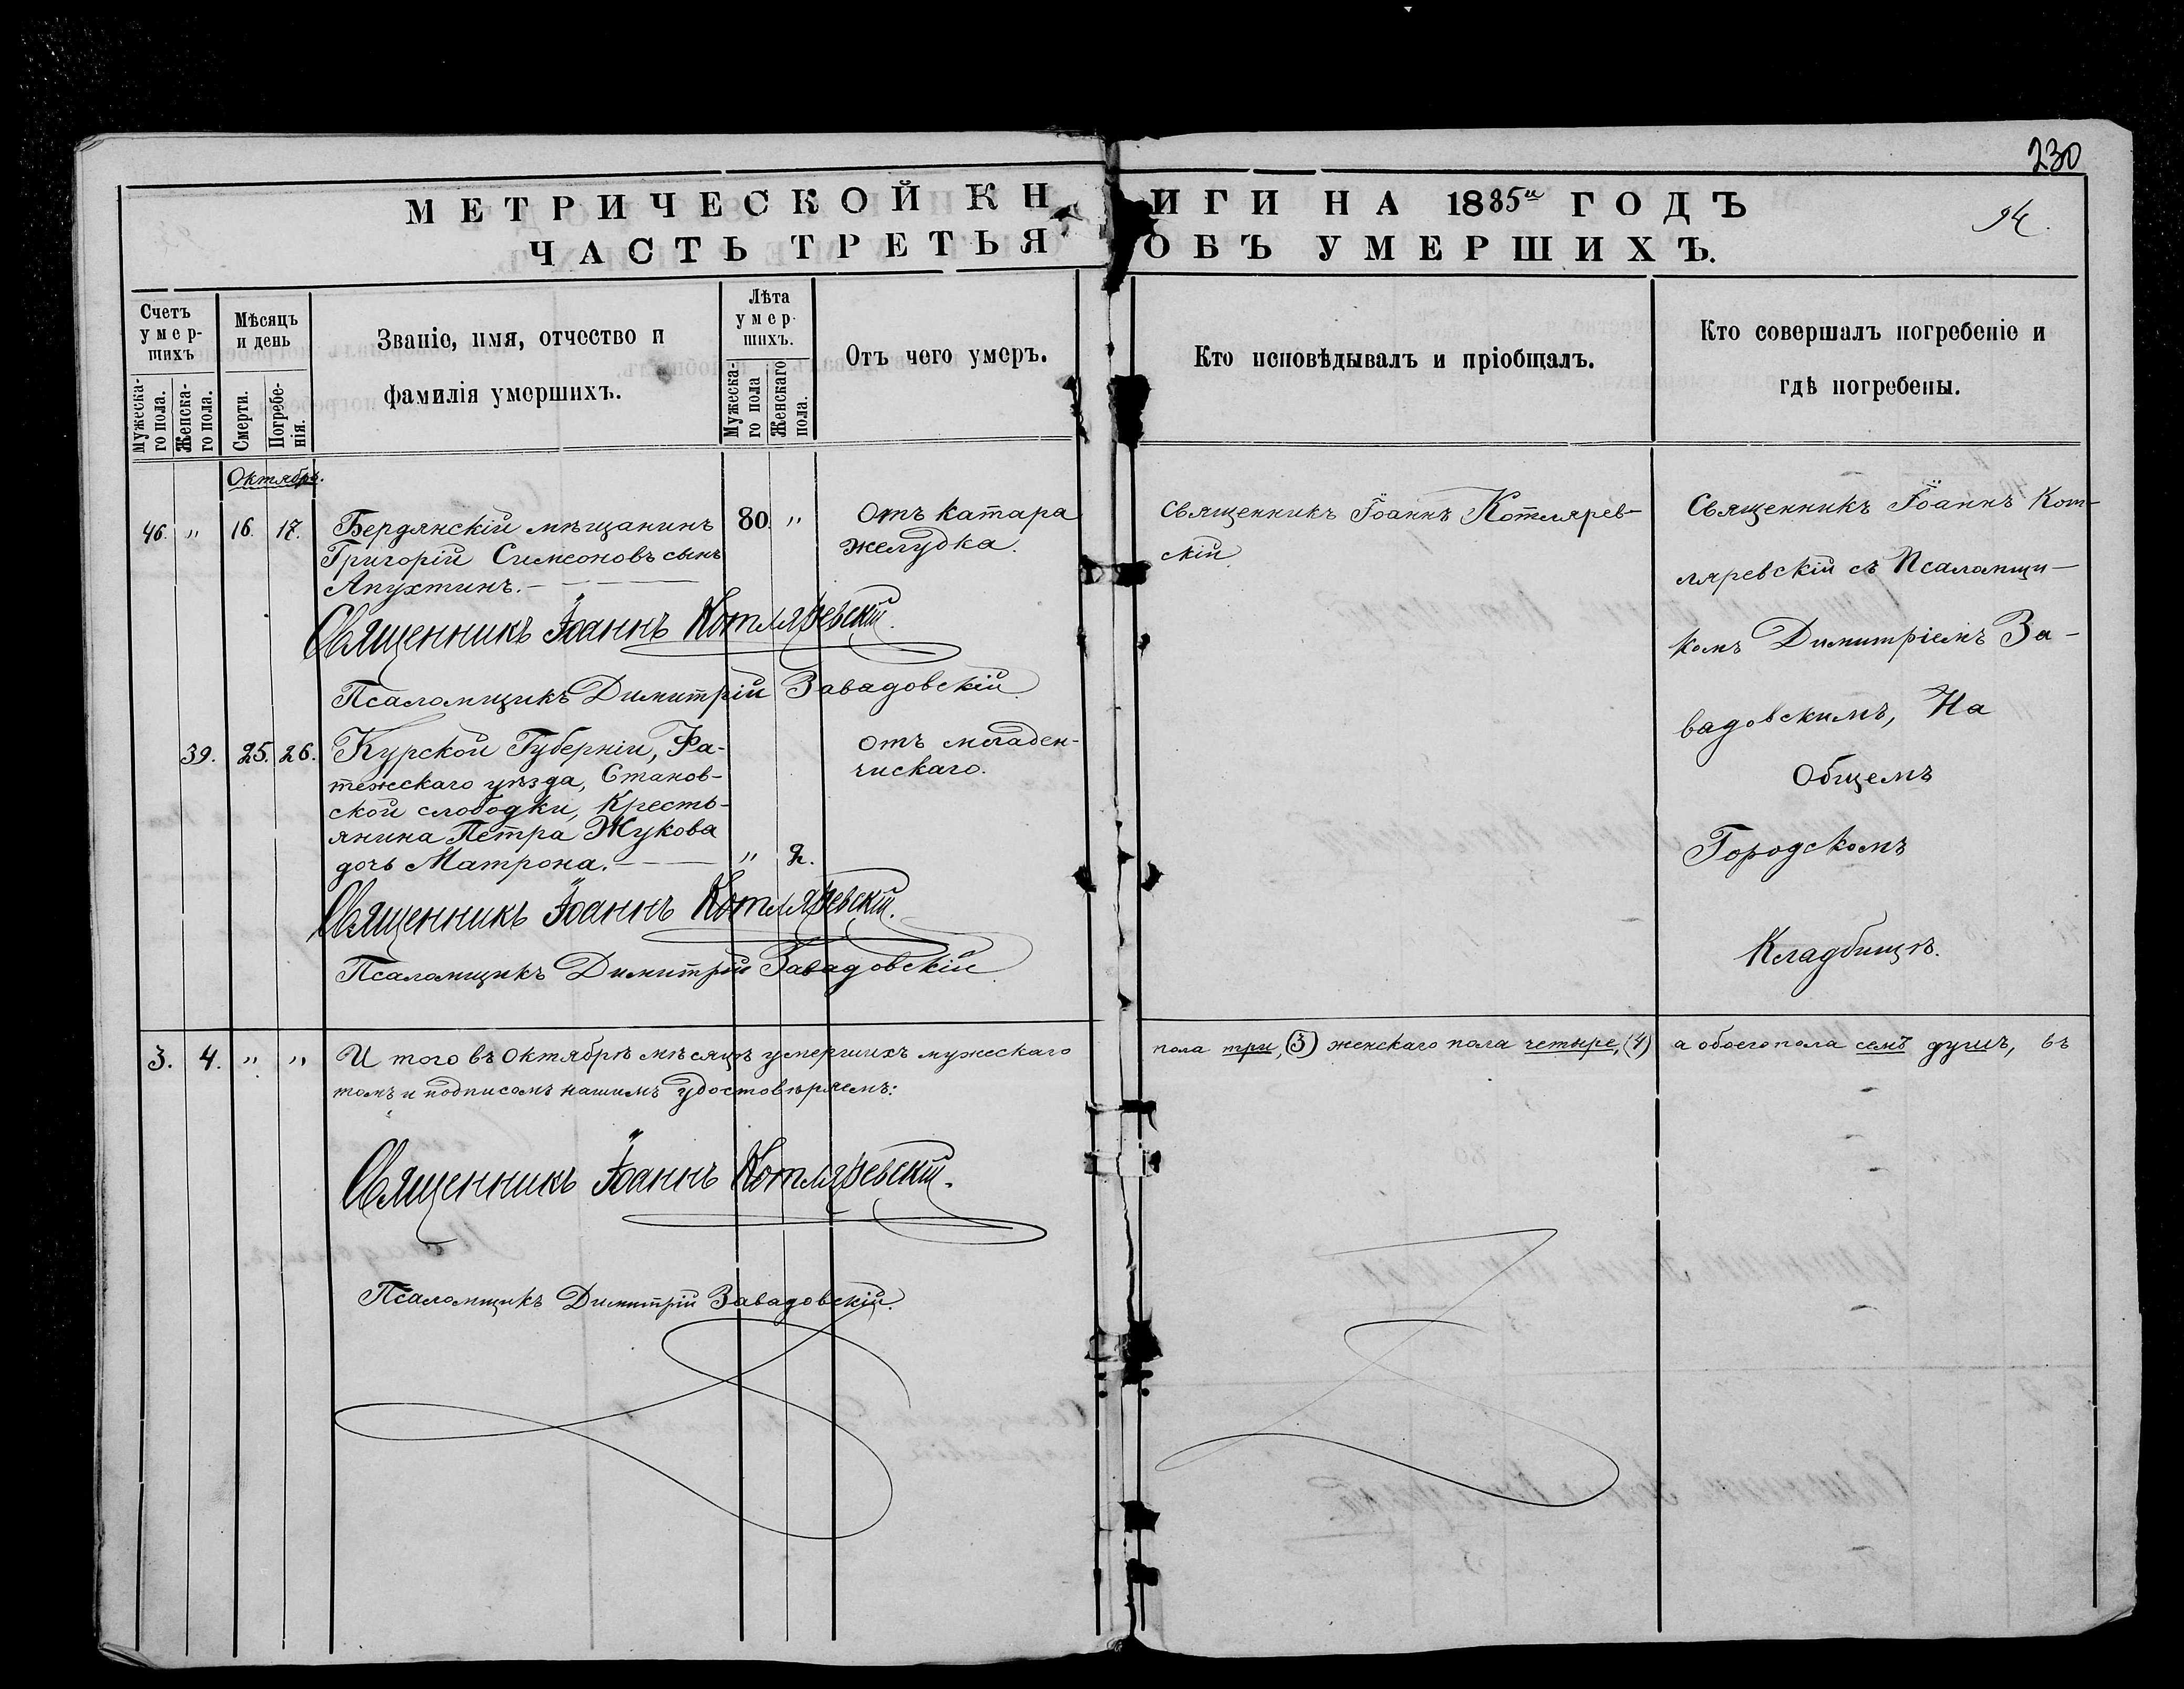 230
МЕТРИЧЕСКОЙ КНИГИ НА 1885й ГОДЪ
ЧАСТЬ ТРЕТЬЯ ОБЪ УМЕРШИХЪ.
Счетъ умер-шихъ
Мужеска-го пола.
Женска-го пола.
Мѣсяцъ и день
Смерти.
Погребе-нія.
Званіе, имя, отчество и
фамилія умершихъ.
Лѣта умер-шихъ.
Мужеска-го пола
Женскаго пола.
Отъ чего умеръ.
Кто исповѣдывалъ и пріобщалъ.
Кто совершалъ погребеніе и
гдѣ погребены.
Октябрь.
46. " 16. 17. Бердянскій мѣщанинъ 80. " Отъ катара
Григорій Симеоновъ сынъ желудка.
Апухтинъ.
Священникъ Іоаннъ Котлярев-
скій
Священникъ Іоаннъ Кот-
ляревскій съ Псаломщи-
комъ Димитріемъ За-
вадовскимъ, На
Общемъ
Городскомъ
Кладбищѣ.
Священникъ Іоаннъ Котляревскій.
Псаломщикъ Димитрій Завадовскій
39. 25. 26. Курской Губерніи, Фа- отъ младен-
тежскаго уѣзда, Станов- чискаго.
ской слободки, Кресть-
янина Петра Жукова
дочь Матрона. "
Священникъ Іоаннъ Котляревскій.
Псаломщикъ Димитрій Завадовскій
3. 4. " " И того въ Октябрѣ мѣсяцѣ умершихъ мужескаго пола три, (3) женскаго пола четыре, (4) а обоего пола семь душъ, въ
томъ и подписомъ нашимъ удостовѣряемъ:
Священникъ Іоаннъ Котляревскій.
Псаломщикъ Димитрій Завадовскій.